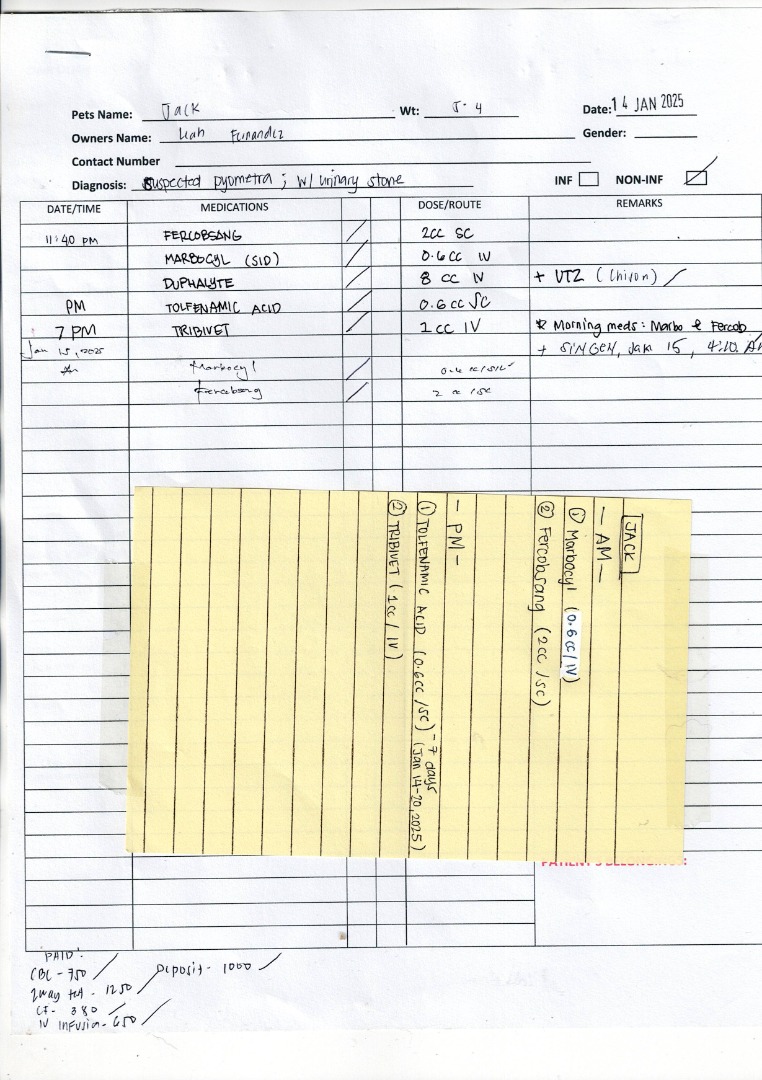 Pets Name: Jack Wt: 5.4 Date: 14 JAN 2025
Owners Name: Leah Fernandez Gender:
Contact Number
Diagnosis: Suspected pyometra ; w/ urinary stone INF NON-INF
DATE/TIME MEDICATIONS DOSE/ROUTE REMARKS
11:40 PM FERCOBSANG 2cc SC
MARBOCYL (SID) 0.6cc IV
DUPHALYTE 8 cc IV + UTZ (Chison)
PM TOLFENAMIC ACID 0.6cc SC
7 PM TRIBIVET 1cc IV * Morning meds: Marbo & Fercob
Jan 15, 2025 + SINGEN, Jan 15, 4:10 AM
Marbocyl
Fercobsang 2 cc /SC
JACK
- AM -
① Marbocyl (0.6cc / IV)
② Fercobsang (2cc / SC)
- PM -
① TOLFENAMIC ACID (0.6cc / SC) - 7 days
(Jan 14-20, 2025)
② TRIBIVET (1cc / IV)
PATIENT'S BELONGINGS:
PAID:
CBC - 750 Deposit - 1000
2way - 1250
CF - 380
IV Infusion - 650